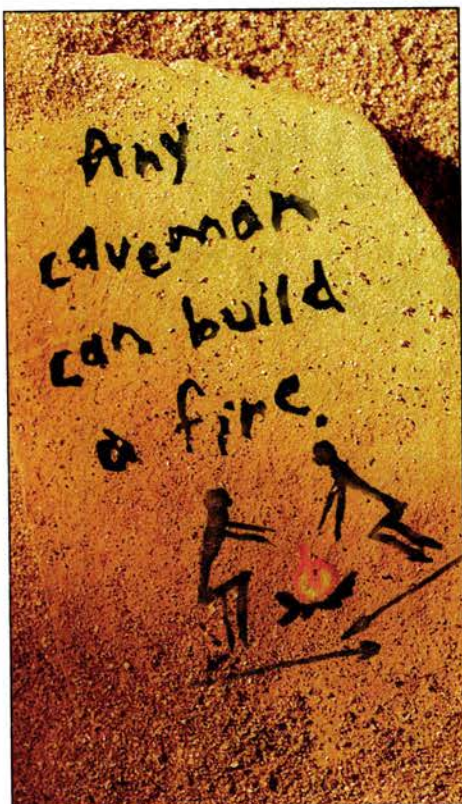 Any
caveman
can build
a fire.